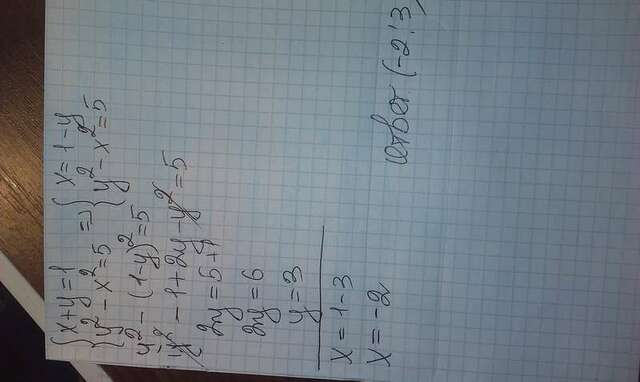 {x+y=1 => {x=1-y
{y²-x²=5 {y²-x²=5
y²-(1-y)²=5
y²-1+2y-y²=5
2y=5+1
2y=6
y=3
x=1-3
x=-2
ответ (-2;3)